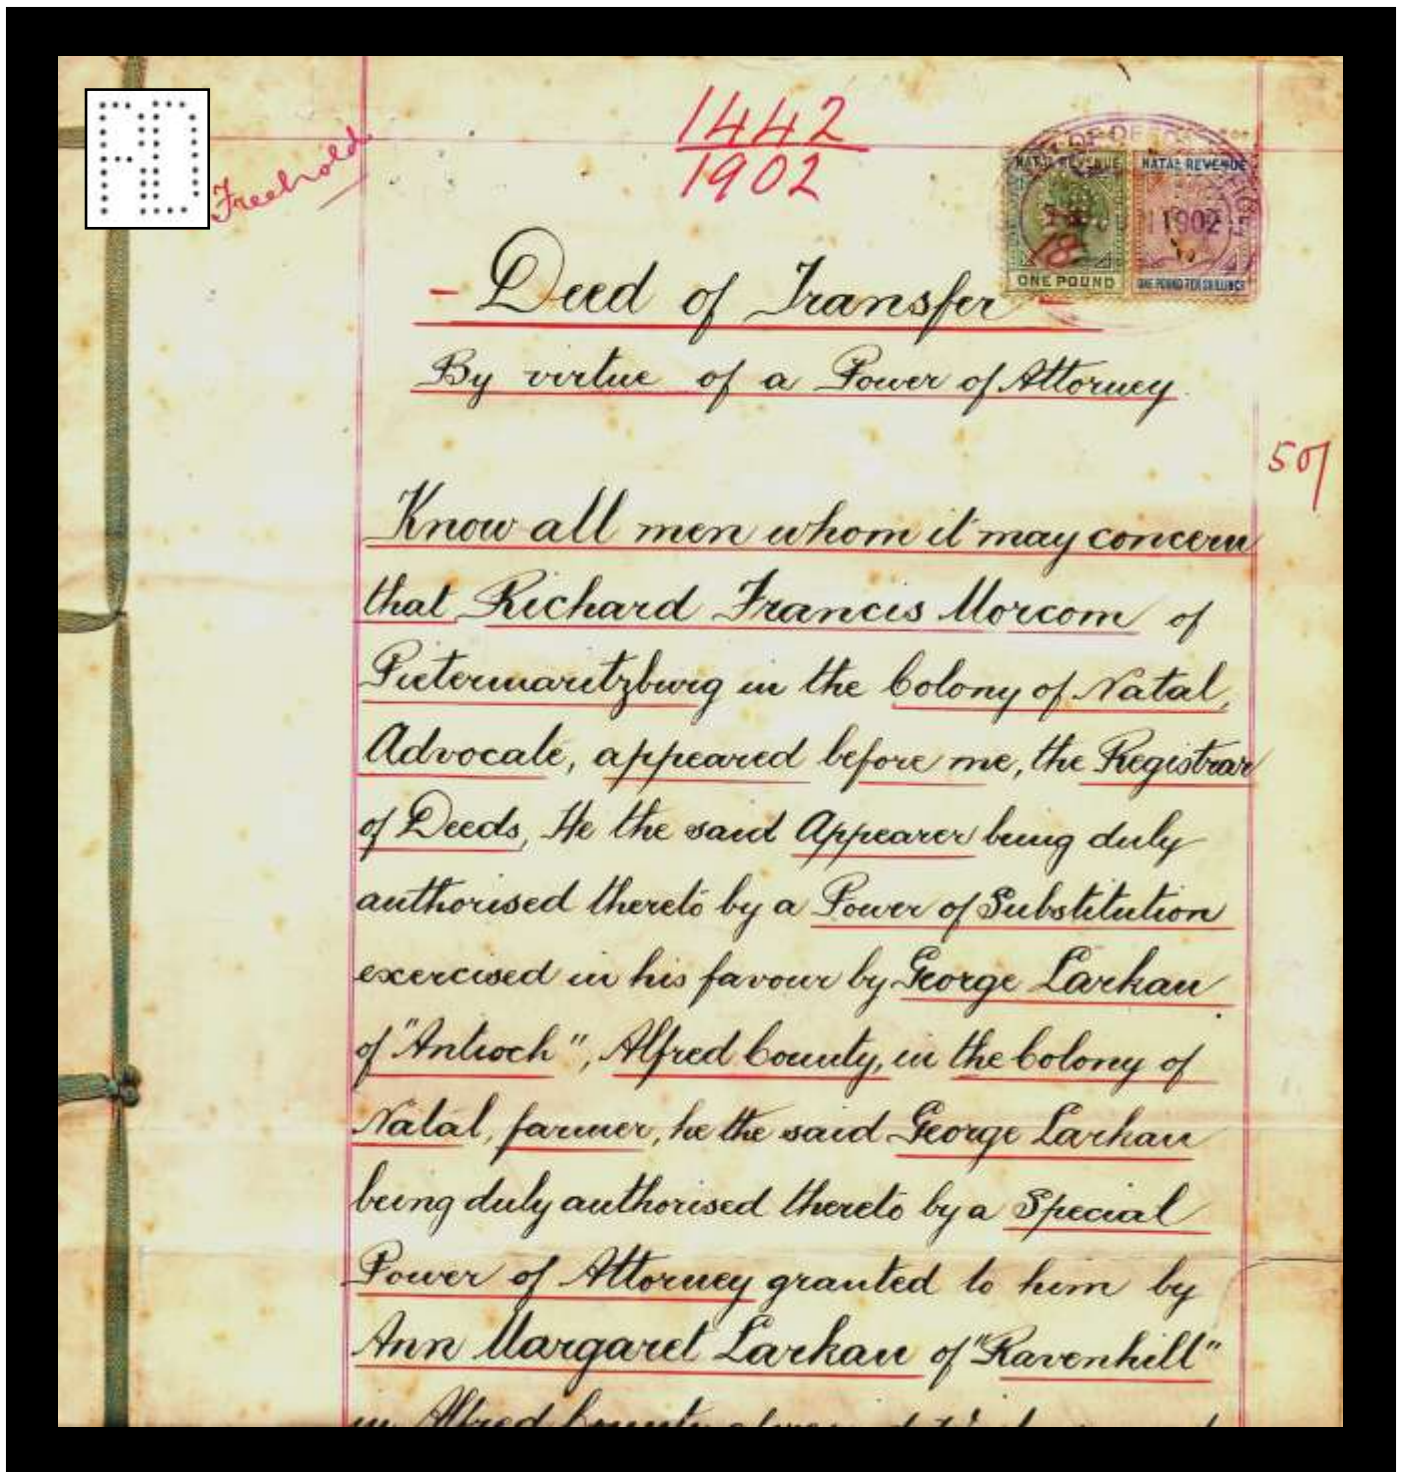 1442
1902
Freehold
NATAL REVENUE NATAL REVENUE
1902
18
ONE POUND ONE POUND TEN SHILLINGS
- Deed of Transfer -
By virtue of a Power of Attorney.
50/
Know all men whom it may concern
that Richard Francis Morcom of
Pietermaritzburg in the Colony of Natal,
Advocate, appeared before me, the Registrar
of Deeds, He the said Appearer being duly
authorised thereto by a Power of Substitution
exercised in his favour by George Larkan
of "Antioch", Alfred County, in the Colony of
Natal, farmer, he the said George Larkan
being duly authorised thereto by a Special
Power of Attorney granted to him by
Ann Margaret Larkan of "Ravenhill"
in Alfred County